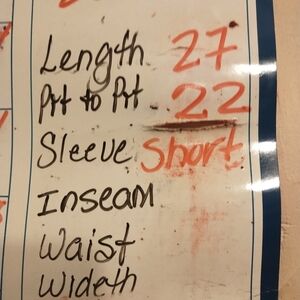 Length 27
Prt to Prt 22
Sleeve Short
Inseam
Waist
Wideth